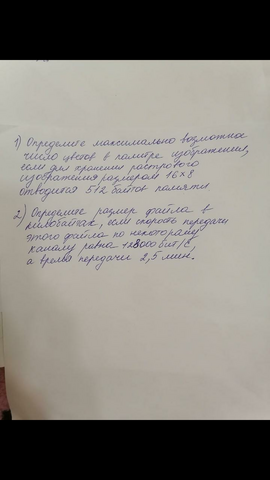 1) Определите максимально возможное
число цветов в палитре изображения,
если для хранения растрового
изображения размером 16×8
отводится 512 байтов памяти
2) Определите размер файла в
килобайтах, если скорость передачи
этого файла по некоторому
каналу равна 128000 бит/с,
а время передачи 2,5 мин.